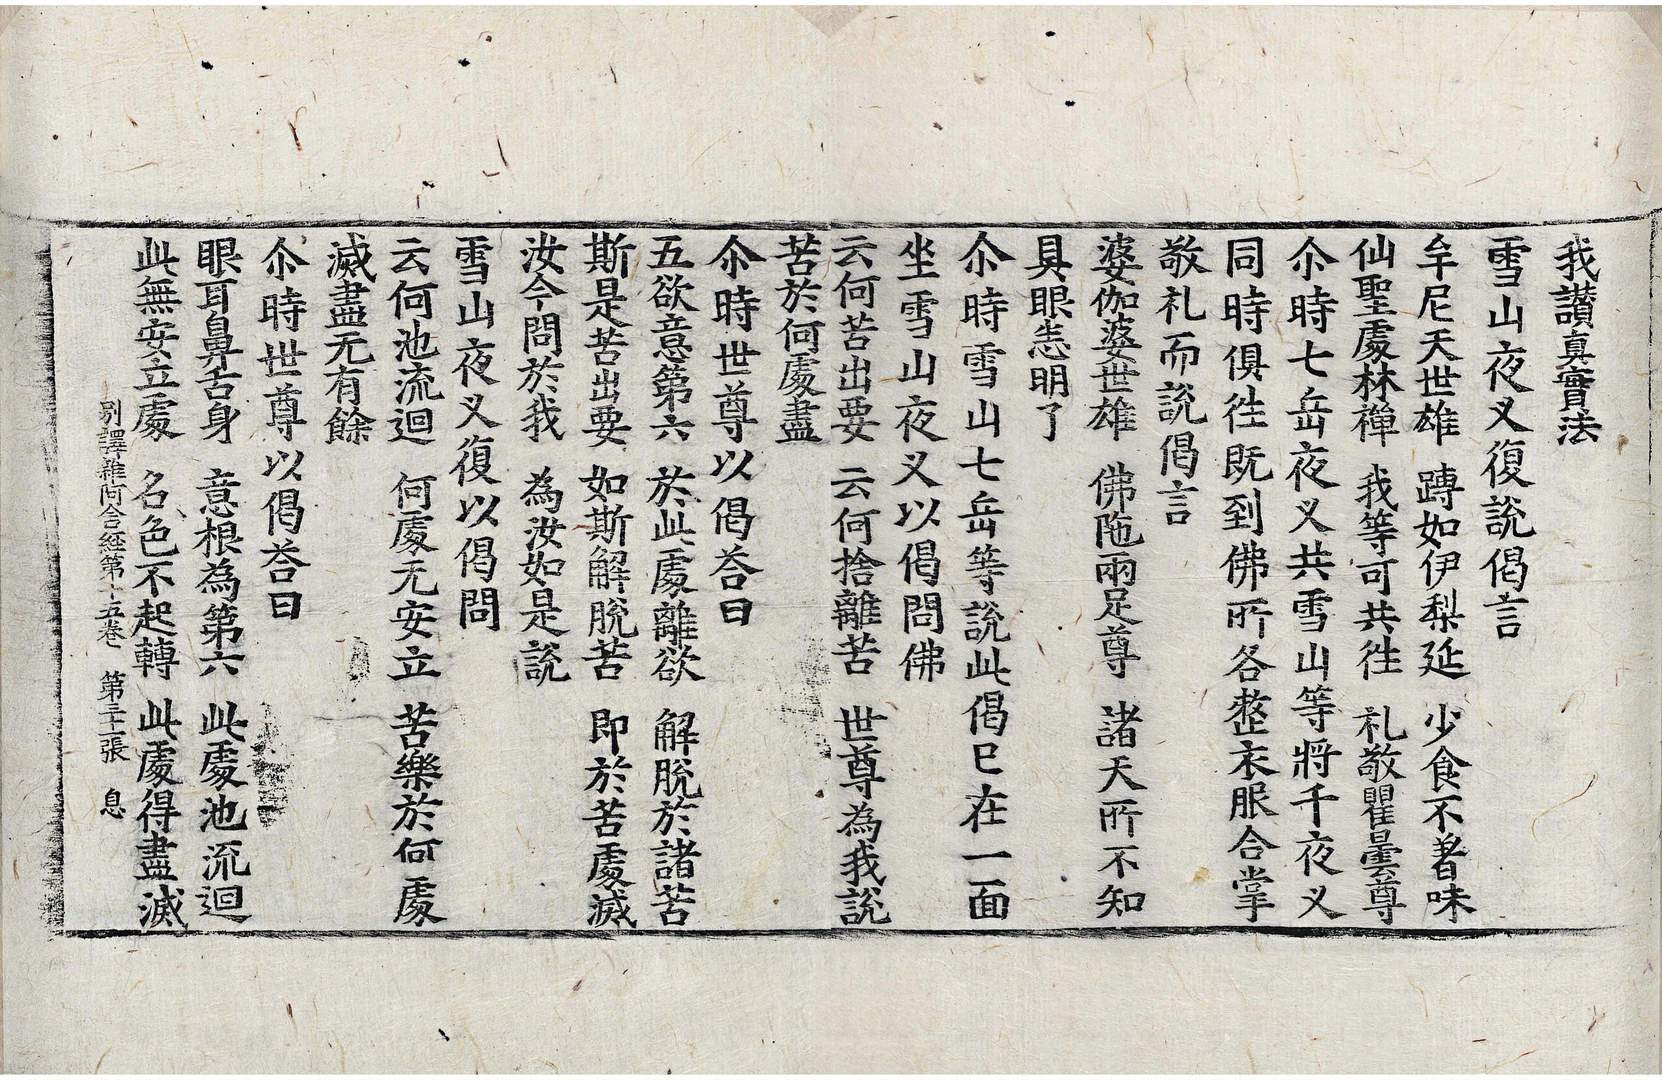 我讃真實法
雪山夜叉復說偈言
牟尼天世雄　䏝如伊梨延　少食不著味
仙聖處林禪　我等可共徃　礼敬瞿曇尊
尒時七岳夜叉共雪山等將千夜叉
同時俱徃既到佛所各整衣服合掌
敬礼而說偈言
婆伽婆世雄　佛陁兩足尊　諸天所不知
具眼悉明了
尒時雪山七岳等說此偈已在一面
坐雪山夜叉以偈問佛
云何苦出要　云何捨離苦　世尊為我說
苦於何處盡
尒時世尊以偈荅曰
五欲意第六　於此處離欲　解脫於諸苦
斯是苦出要　如斯解脫苦　即於苦處滅
汝今問於我　為汝如是說
雪山夜叉復以偈問
云何池流迴　何處无安立　苦樂於何處
滅盡无有餘
尒時世尊以偈荅曰
眼耳鼻舌身　意根為第六　此處池流迴
此無安立處　名色不起轉　此處得盡滅
別譯雜阿含經第十五卷　第三十張　息